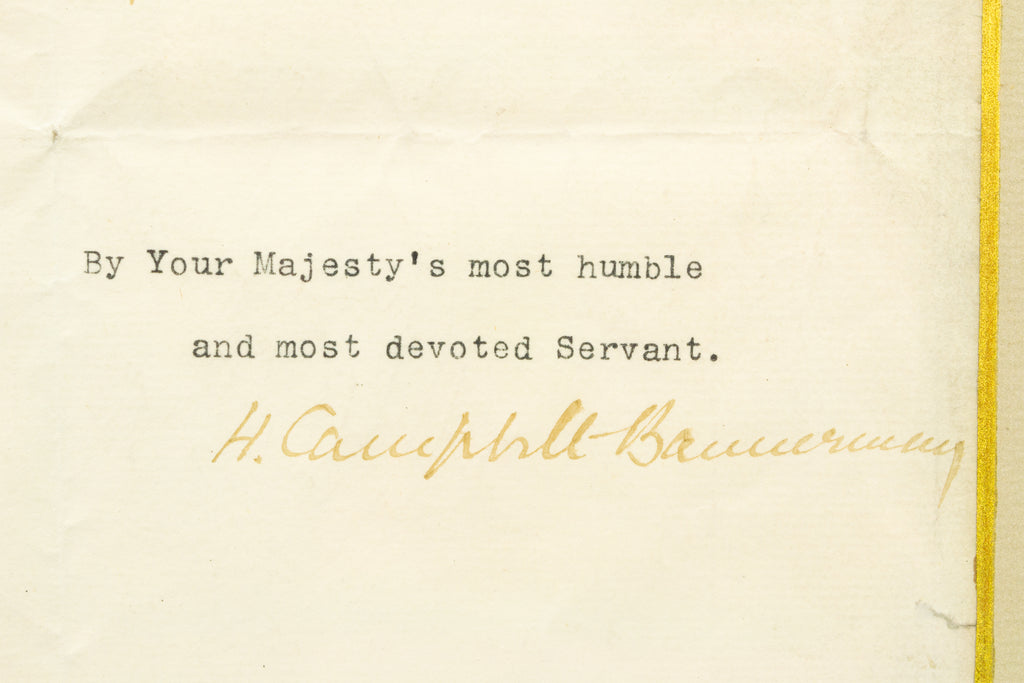 By Your Majesty's most humble
and most devoted Servant.
H. Campbell-Bannerman